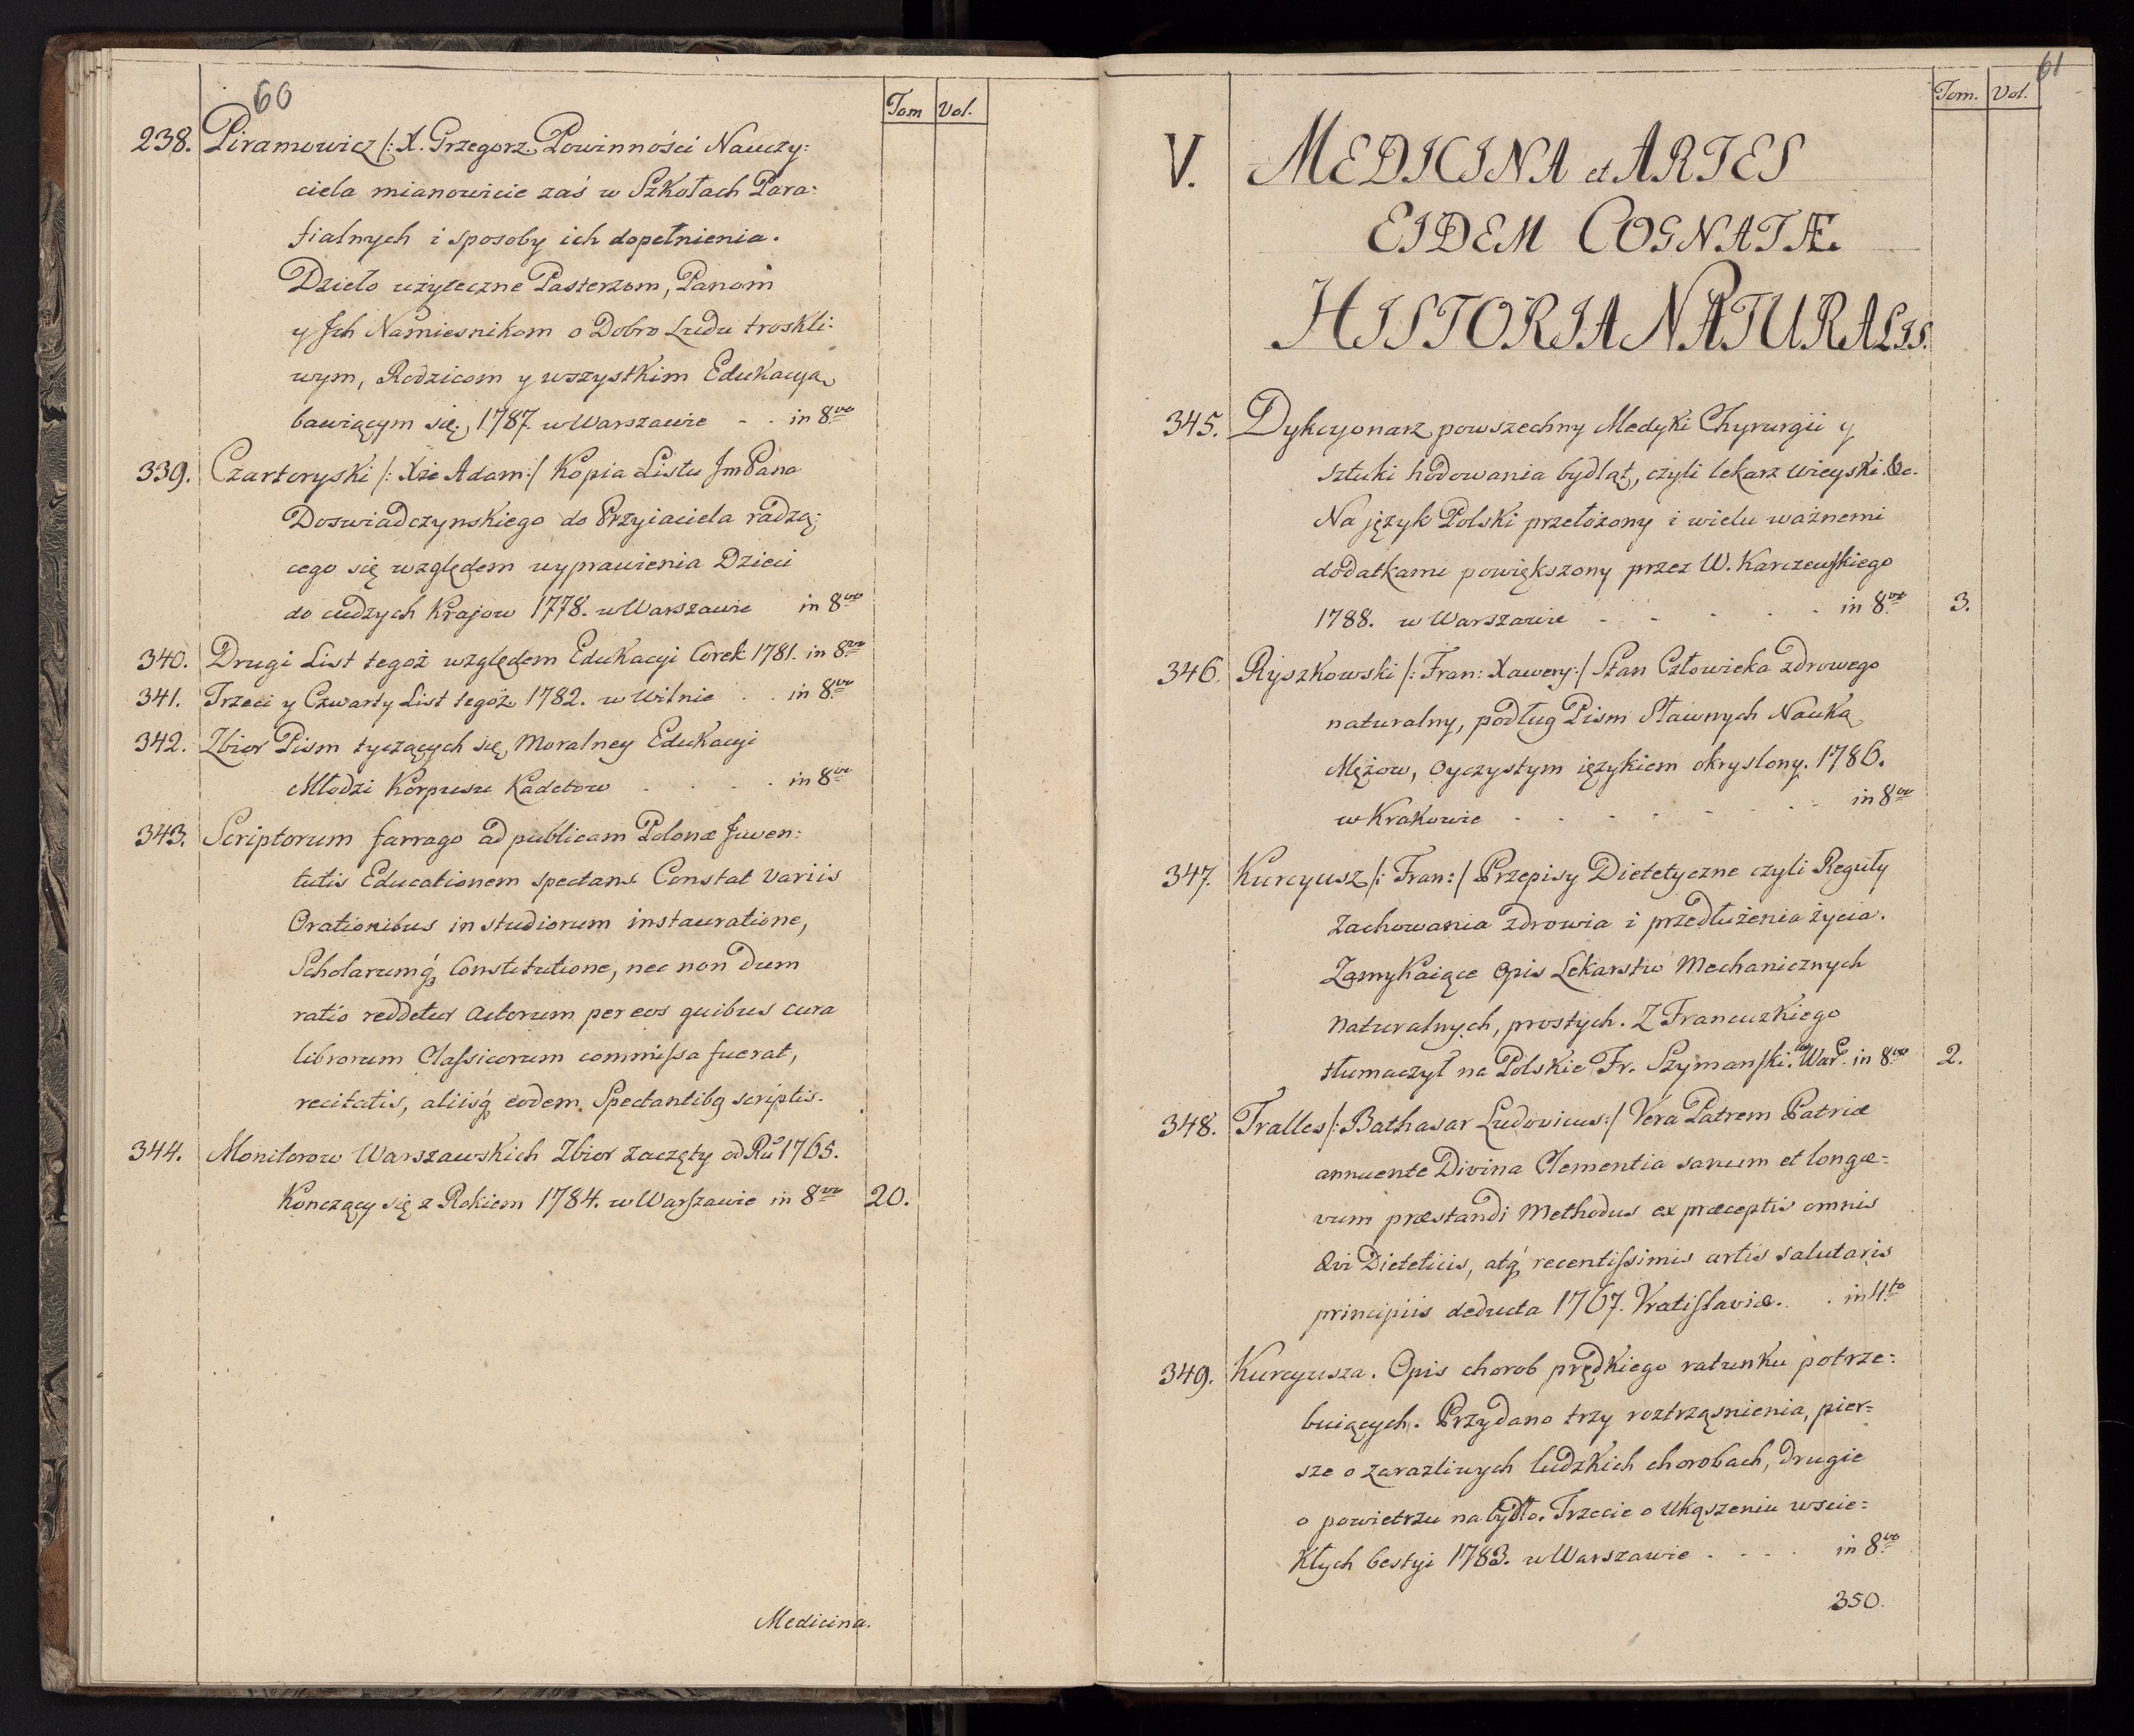 60
Tom Vol.
238. Piramowicz /: X. Grzegorz Powinności Nauczy:
ciela mianowicie zaś w Szkołach Para:
fialnych i sposoby ich dopełnienia.
Dzieło użyteczne Pasterzom, Panom
y Jch Namiesnikom o Dobro Ludu troskli:
wym, Rodzicom y wszystkim Edukacyą
bawiącym się, 1787. w Warszawie - . in 8vo
339. Czartoryski /: Xże Adam:/ Kopia Listu JmPana
Doswiadczynskiego do Przyiaciela radzą:
cego się względem wyprawienia Dzieci
do cudzych Krajow 1778. w Warszawie in 8vo
340. Drugi List tegoż względem Edukacyi Corek 1781. in 8vo
341. Trzeci y Czwarty List tegoż 1782. w Wilnie . . in 8vo
342. Zbior Pism tyczących się Moralney Edukacyi
Młodzi Korpusu Kadetow . . . . in 8vo
343. Scriptorum farrago ad publicam Polonæ Juven:
tutis Educationem spectans Constat variis
Orationibus in studiorum instauratione,
Scholarumq́ Constitutione, nec non dum
ratio reddetur Actorum per eos quibus cura
librorum Claſsicorum commiſsa fuerat,
recitatis, aliisq́ eodem Spectantibq scriptis.
344. Monitorow Warszawskich Zbior zaczęty od Ru 1765.
Konczący się z Rokiem 1784. w Warſzawie in 8vo 20.
Medicina.
61
Tom. Vol.
V. MEDICINA et ARTES
EIDEM COGNATÆ.
HISTORIA NATURALIS.
345. Dykcyonarz powszechny Medyki Chyrurgii y
sztuki hodowania bydląt, czyli lekarz wieyski &c.
Na język Polski przełożony i wielu ważnemi
dodatkami powiększony przez W. Karczewſkiego
1788. w Warszawie - - - - . in 8vo 3.
346. Ryszkowski /: Fran: Xawery:/ Stan Człowieka zdrowego
naturalny, podług Pism Sławnych Nauką
Mężow, oyczystym ięzykiem okryslony. 1786.
w Krakowie - - - - - - - in 8vo
347. Kurcyusz /: Fran:/ Przepisy Dietetyczne czyli Reguły
zachowania zdrowia i przedłużenia życia.
Zamykaiące Opis Lekarstw Mechanicznych
naturalnych, prostych. Z Francuzkiego
tłumaczył na Polskie Fr. Szymanſki. w War. in 8vo 2.
348. Tralles /: Bathasar Ludovicus:/ Vera Patrem Patriæ
annuente Divina Clementia sanum et longæ=
vum præstandi Methodus ex præceptis omnis
ævi Dieteticis, atq́ recentiſsimis artis salutaris
principiis deducta 1767. Vratiſlaviæ. . in 4to
349. Kurcyusza. Opis chorob prędkiego ratunku potrze:
buiących. Przydano trzy roztrząsnienia, pier=
sze o zarazliwych ludzkich chorobach, drugie
o powietrzu na bydło. Trzecie o Ukąszeniu wscie=
kłych bestyi 1783. w Warszawie . - - . in 8vo
350.